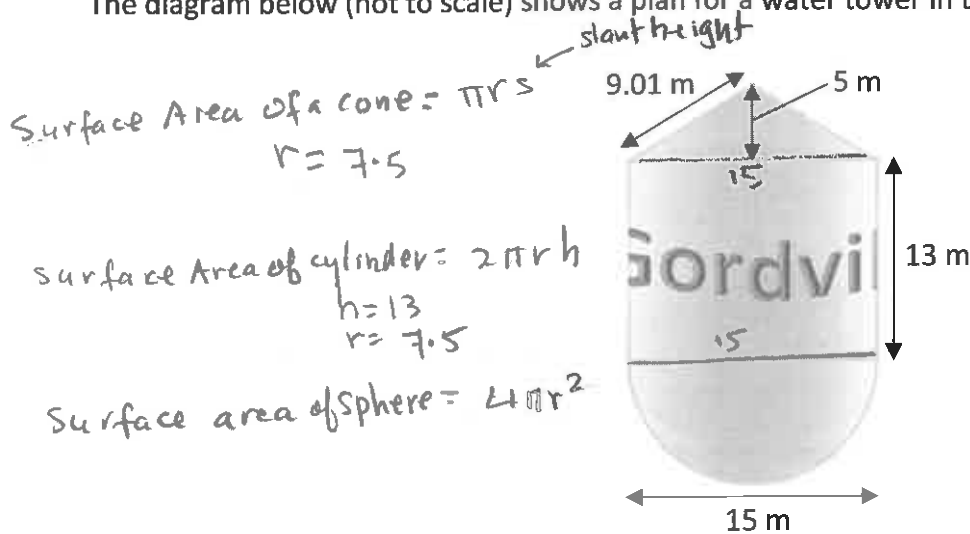 The diagram below (not to scale) shows a plan for a water tower in t
slant height
9.01 m
5 m
Surface Area of a cone = πrs
r = 7.5
15
Surface Area of cylinder = 2πrh
h = 13
r = 7.5
Gordvil
13 m
15
Surface area of sphere = 4πr²
15 m